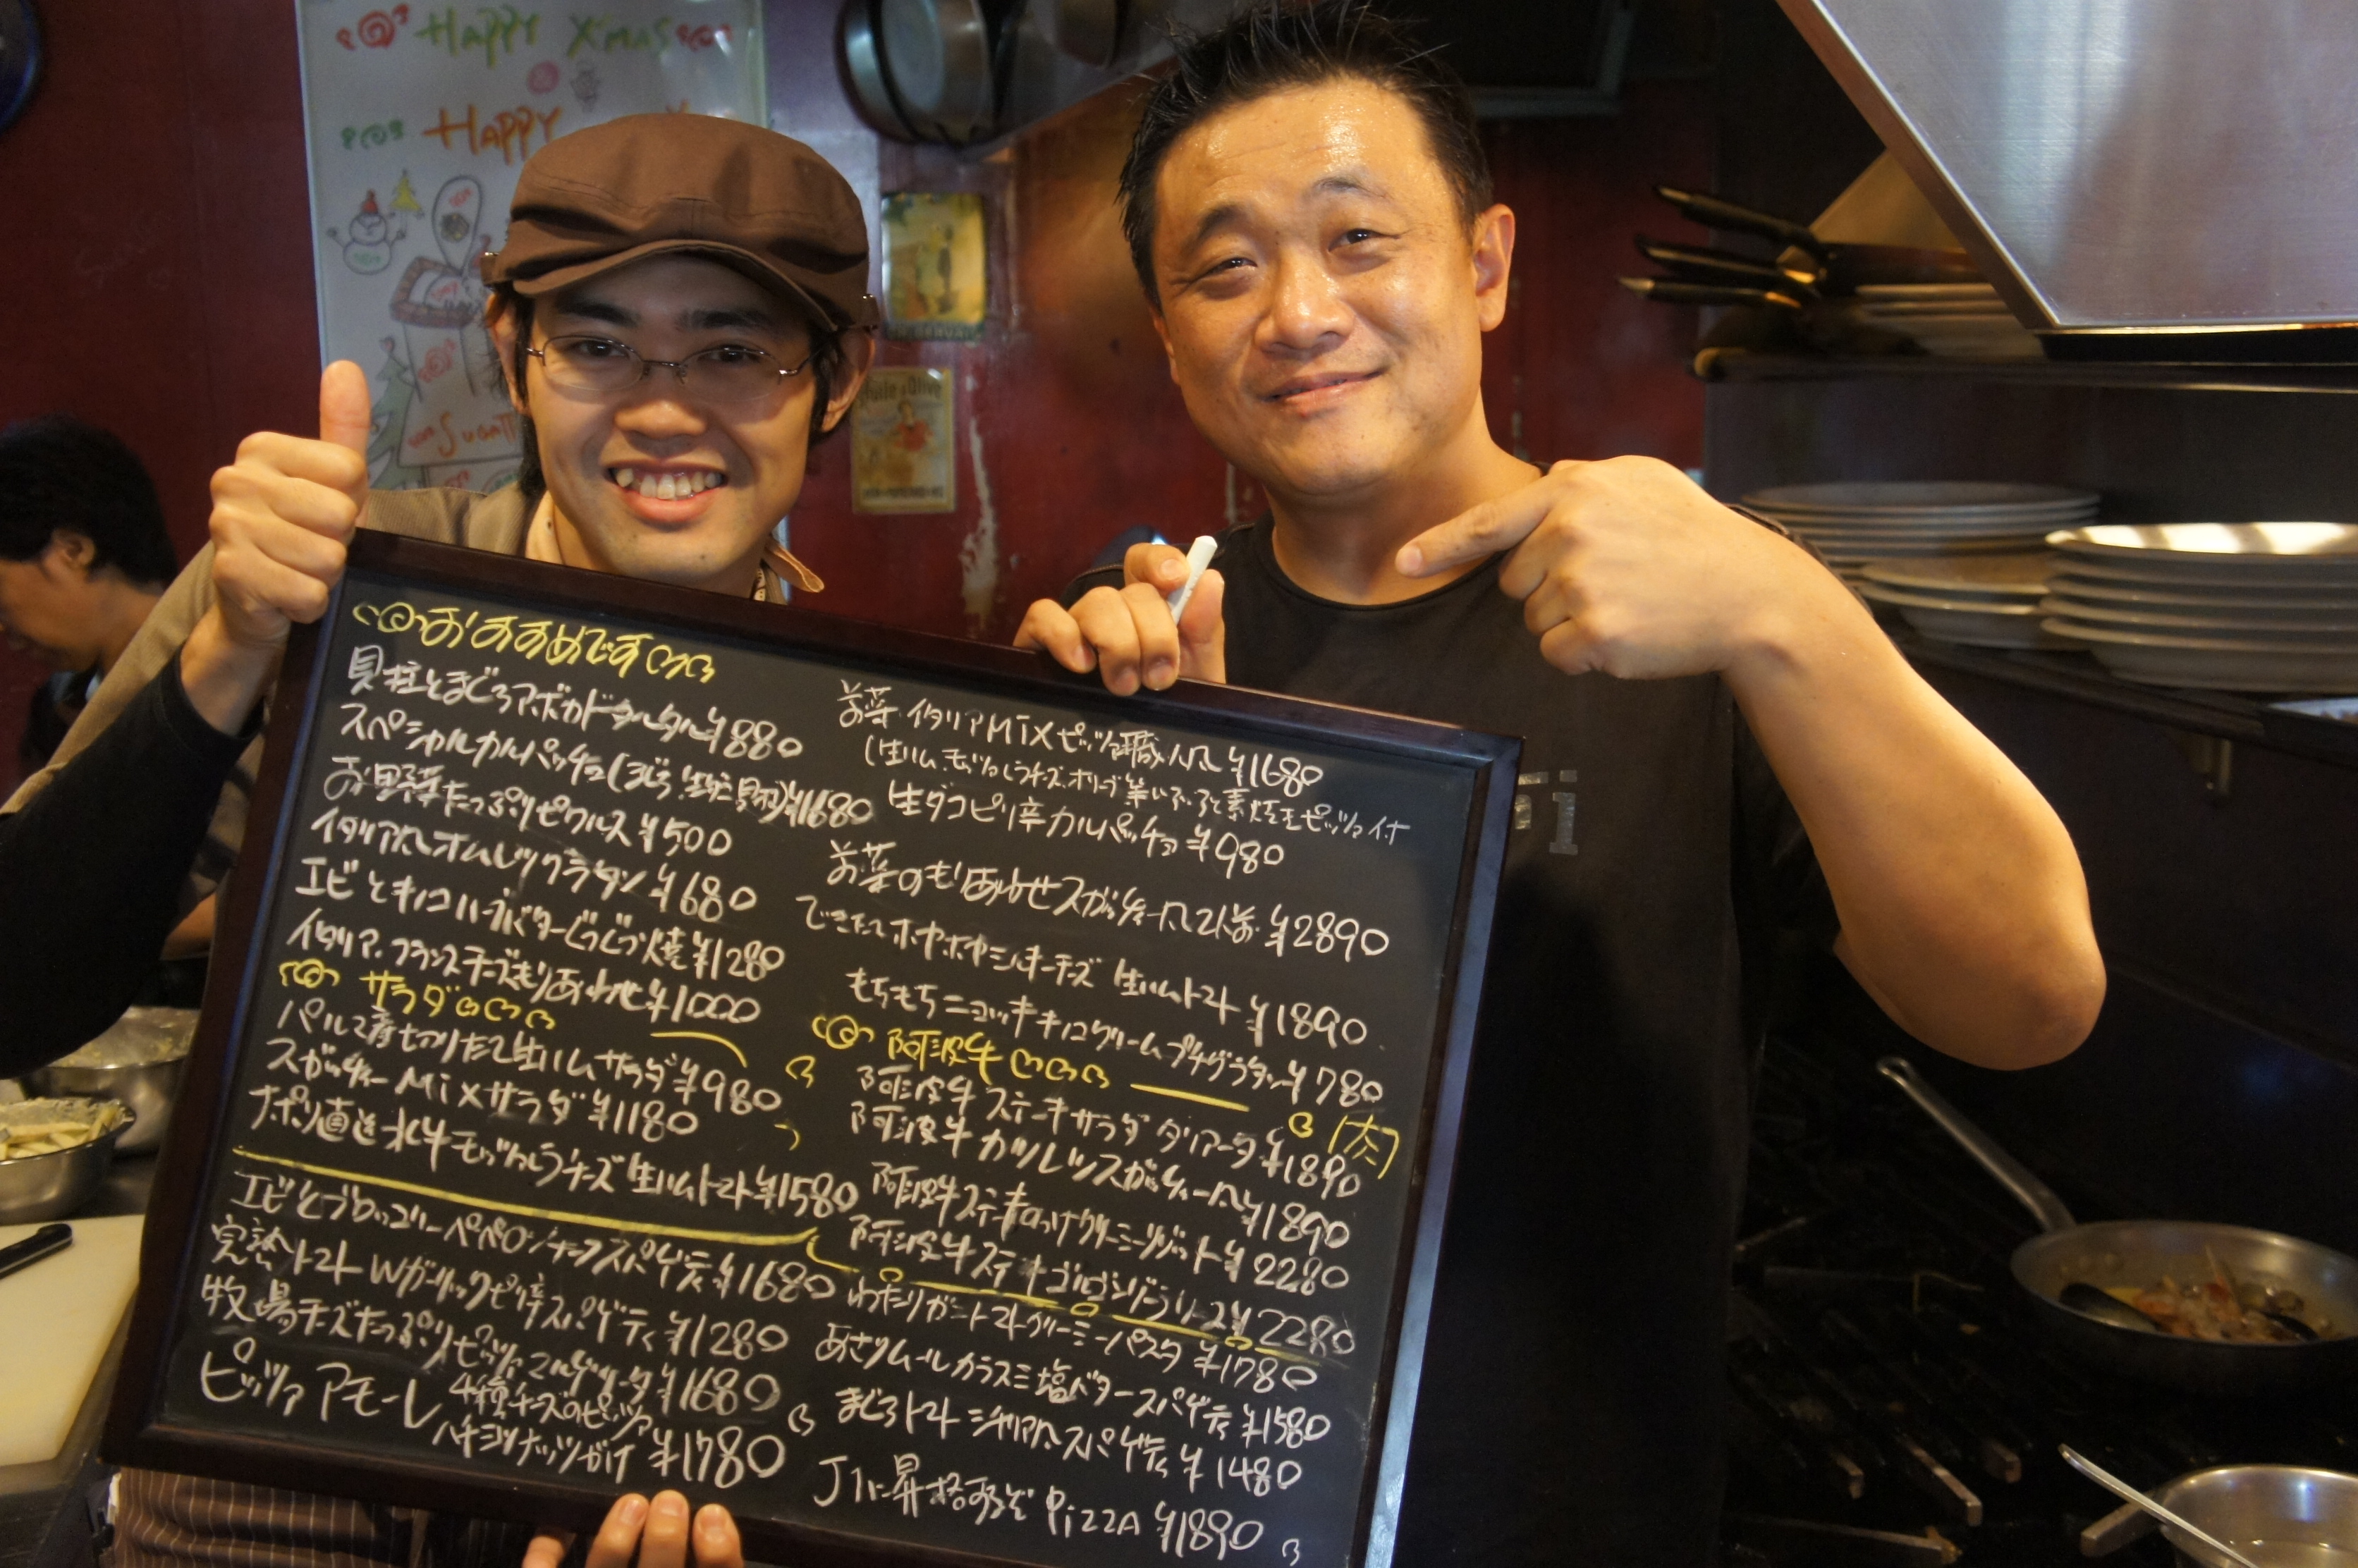 HAPPY X'MAS
HAPPY
おすすめです
貝柱とまぐろアボカドタルタル ¥880
スペシャルカルパッチョ(まぐろ、生だこ、貝柱) ¥1680
お野菜たっぷりピクルス ¥500
イタリア風オムレツグラタン ¥680
エビときのこハーブバターじゅうじゅう焼 ¥1280
イタリア、フランスチーズもりあわせ ¥1000
サラダ
パルマ産切りたて生ハムサラダ ¥980
スガッティーMixサラダ ¥1180
ナポリ直送水牛モッツァレラチーズ 生ハムトマト ¥1580
エビとブロッコリーペペロンチーノスパゲティ ¥1680
完熟トマトWガーリックピリ辛スパゲティ ¥1280
牧場チーズたっぷりピッツァマルゲリータ ¥1680
ピッツァアモーレ 4種チーズのピッツァ
ハチミツナッツがけ ¥1780
前菜 イタリアMixピッツァ職人風 ¥1680
(生ハム、モッツァレラチーズ、オリーブ 素焼きピッツァ付
生ダコピリ辛カルパッチョ ¥980
前菜のもりあわせスガッティー風2人前 ¥2890
できたてホヤホヤシルキーチーズ 生ハムトマト ¥1890
もちもちニョッキ キノコクリームプチグラタン ¥780
阿波牛
阿波牛ステーキサラダ タリアータ ¥1890
肉
阿波牛カツレツスガッティー風 ¥1890
阿波牛ステーキのっけクリーミーリゾット ¥2280
阿波牛ステーキゴルゴンゾーラソース ¥2280
わたりガニトマトクリーミーパスタ ¥1780
あさりムールカラスミ塩バタースパゲティ ¥1580
まぐろトマトシチリア風スパゲティ ¥1480
J1に昇格するぞ PizzA ¥1890